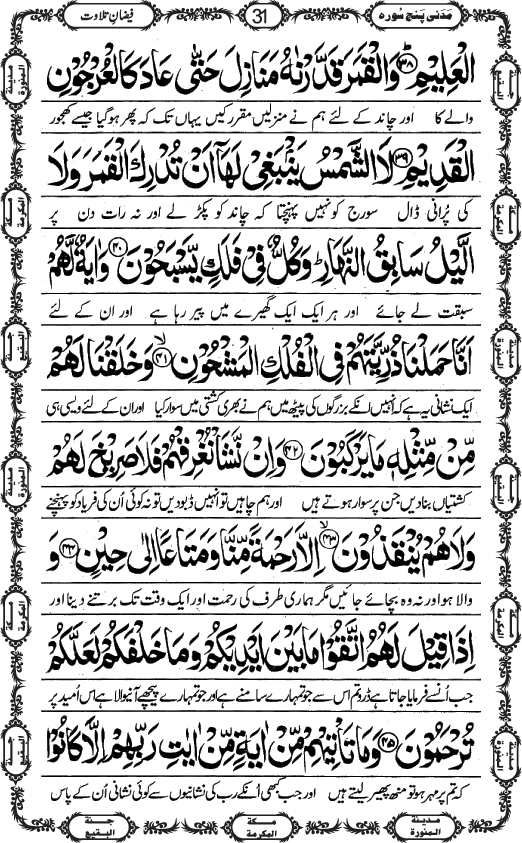 مَدَنی پنج سُورہ
31
فیضانِ تلاوت
الْعَلِیْمِ ﴿۳۸﴾ وَالْقَمَرَ قَدَّرْنٰهُ مَنَازِلَ حَتّٰى عَادَ كَالْعُرْجُوْنِ
والے کا اور چاند کے لئے ہم نے منزلیں مقرر کیں یہاں تک کہ پھر ہو گیا جیسے کھجور
الْقَدِیْمِ ﴿۳۹﴾ لَا الشَّمْسُ یَنْۢبَغِیْ لَهَاۤ اَنْ تُدْرِكَ الْقَمَرَ وَلَا
کی پُرانی ڈال سورج کو نہیں پہنچتا کہ چاند کو پکڑ لے اور نہ رات دن پر
الَّیْلُ سَابِقُ النَّهَارِ ؕ وَكُلٌّ فِیْ فَلَكٍ یَّسْبَحُوْنَ ﴿۴۰﴾ وَاٰیَةٌ لَّهُمْ
سبقت لے جائے اور ہر ایک ایک گھیرے میں پیر رہا ہے اور ان کے لئے
اَنَّا حَمَلْنَا ذُرِّیَّتَهُمْ فِی الْفُلْكِ الْمَشْحُوْنِ ﴿۴۱﴾ وَخَلَقْنَا لَهُمْ
ایک نشانی یہ ہے کہ اُنہیں انکے بزرگوں کی پیٹھ میں ہم نے بھری کشتی میں سوار کیا اور ان کے لئے ویسی ہی
مِّنْ مِّثْلِهٖ مَا یَرْكَبُوْنَ ﴿۴۲﴾ وَاِنْ نَّشَاْ نُغْرِقْهُمْ فَلَا صَرِیْخَ لَهُمْ
کشتیاں بنا دیں جن پر سوار ہوتے ہیں اور ہم چاہیں تو اُنہیں ڈبو دیں تو نہ کوئی اُن کی فریاد کو پہنچنے
وَلَا هُمْ یُنْقَذُوْنَ ﴿۴۳﴾ اِلَّا رَحْمَةً مِّنَّا وَمَتَاعًا اِلٰى حِیْنٍ ﴿۴۴﴾ وَ
والا ہو اور نہ وہ بچائے جائیں مگر ہماری طرف کی رحمت اور ایک وقت تک برتنے دینا اور
اِذَا قِیْلَ لَهُمُ اتَّقُوْا مَا بَیْنَ اَیْدِیْكُمْ وَمَا خَلْفَكُمْ لَعَلَّكُمْ
جب اُنسے فرمایا جاتا ہے ڈرو تم اس سے جو تمہارے سامنے ہے اور جو تمہارے پیچھے آنیوالا ہے اس اُمید پر
تُرْحَمُوْنَ ﴿۴۵﴾ وَمَا تَاْتِیْهِمْ مِّنْ اٰیَةٍ مِّنْ اٰیٰتِ رَبِّهِمْ اِلَّا كَانُوْا
کہ تم پر مہر ہو تو منھ پھیر لیتے ہیں اور جب کبھی اُنکے رب کی نشانیوں سے کوئی نشانی اُن کے پاس
جنة البقیع
مكة المكرمة
مدينة المنورة
جنة البقیع
مكة المكرمة
مدينة المنورة
مدينة المنورة
مكة المكرمة
جنة البقیع
مدينة المنورة
مكة المكرمة
جنة البقیع
مدينة المنورة
مكة المكرمة
جنة البقیع